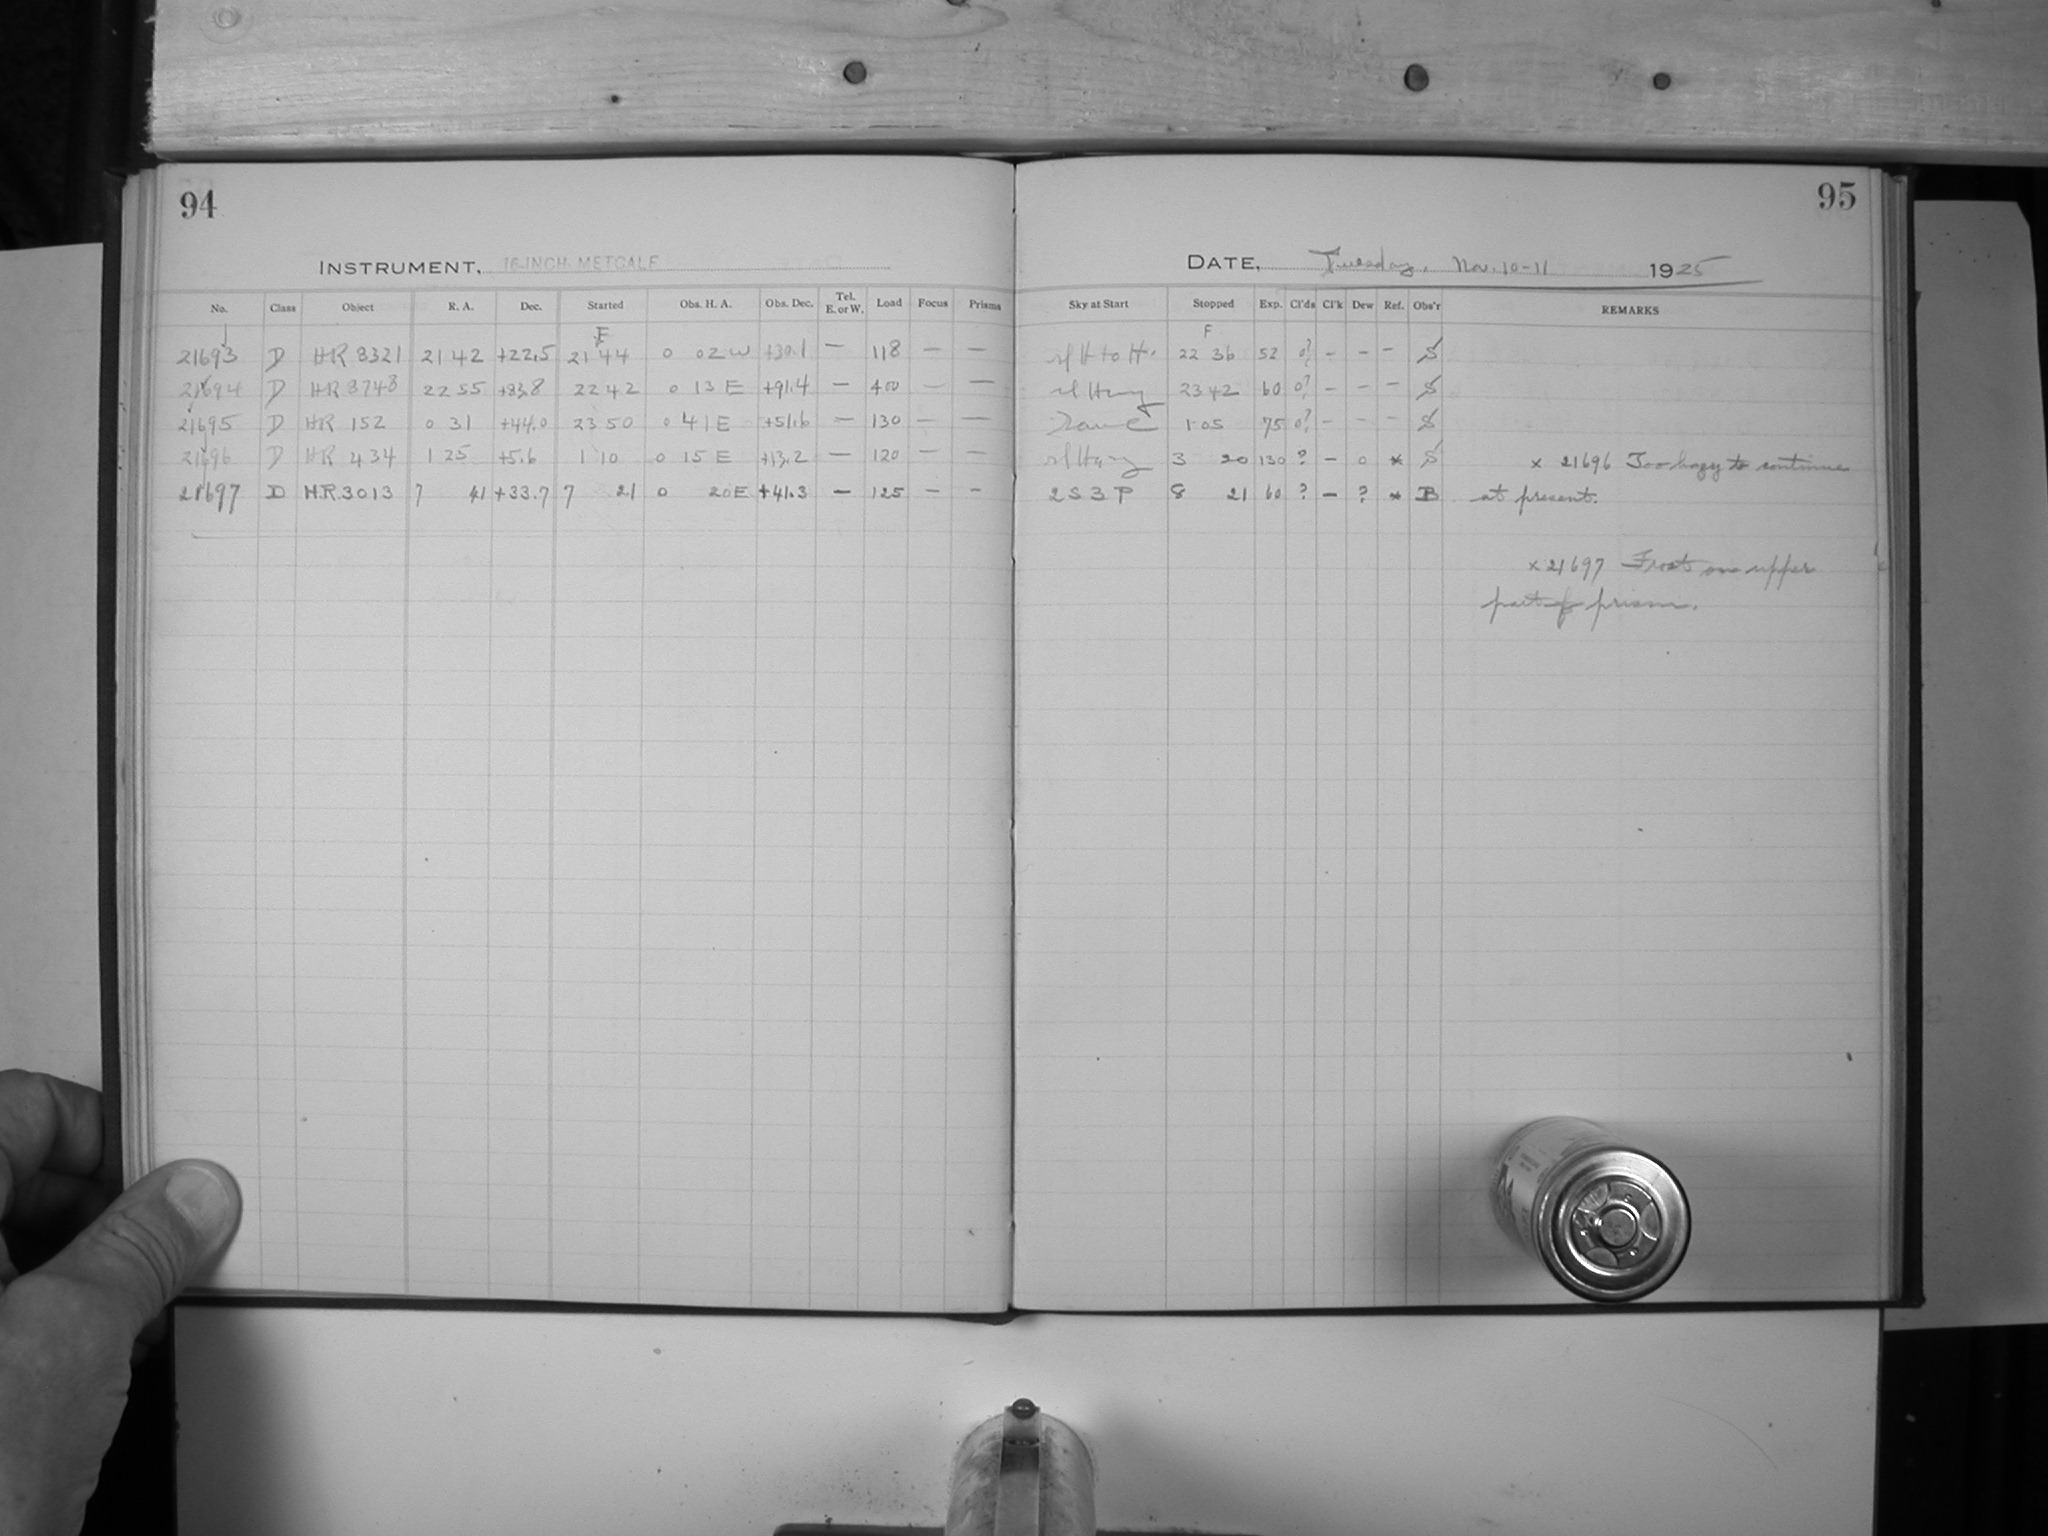 94
INSTRUMENT, 16-INCH METCALF
No. Class Object R. A. Dec. Started Obs. H. A. Obs. Dec. Tel. E. or W. Load Focus Prisms
F
21693 D HR 8321 21 42 +22.5 21 44 0 02 W +30.1 — 118 — —
21694 D HR 8748 22 55 +83.8 22 42 0 13 E +91.4 — 400 — —
21695 D HR 152 0 31 +44.0 23 50 0 41 E +51.6 — 130 — —
21696 D HR 434 1 25 +5.6 1 10 0 15 E +13.2 — 120 — —
21697 D H.R. 3013 7 41 +33.7 7 21 0 20 E +41.3 — 125 — —
95
DATE, Tuesday, Nov. 10-11 1925
Sky at Start Stopped Exp. Cl'ds Cl'k Dew Ref. Obs'r REMARKS
F
sl H to H. 22 36 52 0? — — — S
sl Hazy 23 42 60 0? — — — S
Same 1 05 75 0? — — — S
sl Hazy 3 20 130 ? — 0 * S x 21696 Too hazy to continue
2 S 3 P 8 21 60 ? — ? * B at present.
x 21697 Frost on upper
part of prism.